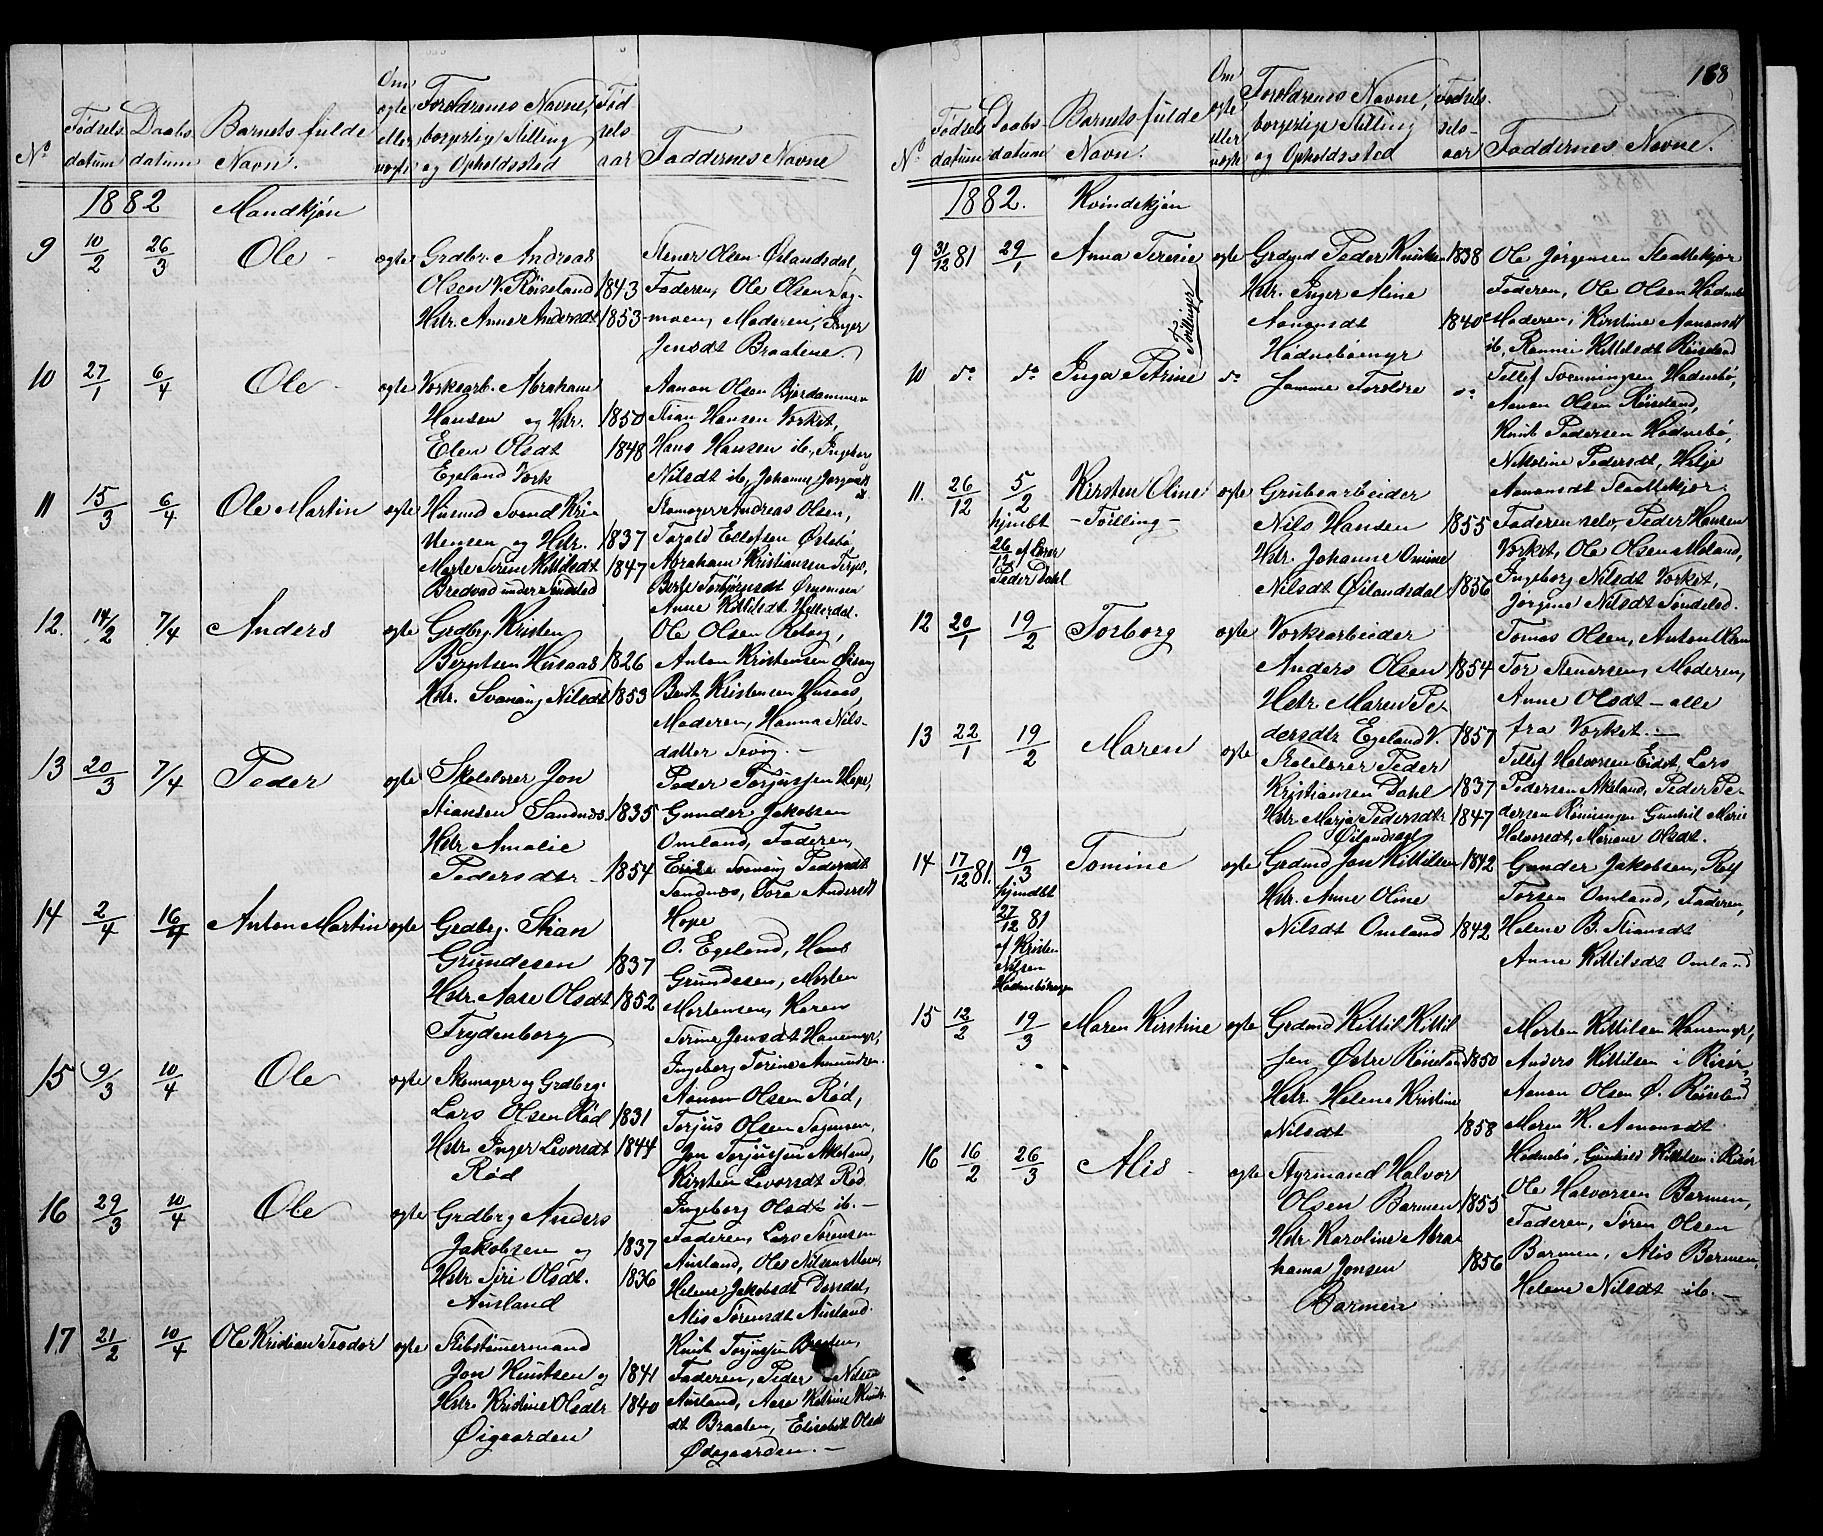 Nº
Fødsels
datum
Daabs
datum
Barnets fulde
Navn.
Om
ægte
eller
uægte
Forældrenes Navne,
borgerlig Stilling
og Opholdssted
Fød
sels
aar
Faddernes Navne
1882
Mandkjøn
9
10/2
26/3
Ole
ægte
Grdbr. Andreas
Olsen V. Røiseland
Hstr. Anne Andersdt
1843
1853
Stener Olsen Østandsdal,
Faderen, Ole Olsen
moen, Moderen, Inger
Jensdt Braatene.
10
27/1
6/4
Ole
ægte
Værksarb. Abraham
Hansen og Hstr.
Elen Olsdt
Egeland Værk
1850
1848
Aanon Olsen Bjordammen
Stian Hansen Værket,
Hans Hansen ib., Ingeborg
Nilsdt ib., Johanne
11
15/3
6/4
Ole Martin
ægte
Husmd Svend Kri
stensen og Hstr.
Marte Serene Kittilsdt
Bredvad under Søndeled
1837
1847
Skomager Andreas Olsen,
Torald Ellefsen Østebø
Abraham Kristiansen
Berte Torbjørnsdt
Anne Kittilsdt Hellerdal.
12.
14/2
7/4
Anders
ægte
Grdbrg. Kristen
Berntsen Husaas
Hstr. Svanaug Nilsdt
1826
1853
Ole Olsen
Anton Kristensen
Bent Kristensen Husaas,
Moderen, Hanna Nils-
datter Sevig.
13
20/3
7/4
Peder
ægte
Skolelærer Jon
Stiansen Sandnæs
Hstr Amalie
Pedersdtr
1835
1854
Peder Torjussen Hope,
Gunder Jakobsen
Omland, Faderen,
Svanaug Pedersdt
Sandnæs, Tora Andersdt
Hope
14
2/4
16/4
Anton Martin
ægte
Grdbrg. Stian
Grundesen
Hstr. Aase Olsdt
Frydenborg
1837
1852
O. Egeland, Hans
Grundesen, Morten
Mortensen, Karen
Serine Jensdt Hanemyr,
Ingeborg Terine Amundsen
15
9/3
10/4
Ole
ægte
Skomager og Grdbrg.
Lars Olsen Rød
Hstr. Inger Levorsdt
Rød
1831
1844
Aanon Olsen Rød,
Terjus Olsen
Jon Terjussen Akeland,
Kirsten Levorsdt Rød
Ingeborg Olsdt ib.
16
29/3
10/4
Ole
ægte
Grdbrg Anders
Jakobsen og
Hstr Siri Olsdt.
Ausland
1837
1836
Faderen, Lars Sørensen
Ausland, Ole Nilsen
Helene Jakobsdt Dørsdal,
Alis Sørensdt Ausland.
17
21/2
10/4
Ole Kristian Teodor
ægte
Skibstømmermand
Jon Knutsen og
Hstr. Kristine Olsdtr
Øigaarden
1841
1840
Knut Torjussen Braaten,
Faderen, Peder Nilsen
Ausland, Aase Katrine Knuts-
dt Braaten, Elisabet Olsdt
Ødegaarden.
168
Nº
Fødsels
datum
Daabs-
datum
Barnets fulde
Navn.
Om
ægte
eller
uægte
Forældrenes Navne,
borgerlige Stilling
og Opholdssted
Fødsels-
aar
Faddernes Navne.
1882.
Kvindekjøn
9
31/12 81
29/1
Anna Teresie
Tvillinger
ægte
Grdmd Peder Knutsen
Hstr. Inger Aline
Aanonsdt
Hødnebømyr
1838
1840
Ole Jørgensen Slaattekjær
Faderen, Ole Olsen Hødnebø
Moderen, Kirstine Aanonsdt
ib, Rannei Kittilsdt Røiseland
10
do
do
Inga Petrine
do
Samme Forældre
do
Tellef Sørenningsen Hødnebø,
Aanon Olsen Røiseland,
Knut Pedersen Hødnebø,
Nikoline Pedersdt, Helje
Aanonsdt Slaattekjær.
11.
26/12
5/2
hjmbt
26/12 af Lærer
Peder Dahl
Kirsten Oline
- Tvilling -
ægte
Grubearbeider
Nils Hansen
Hstr. Johanne Omine
Nilsdt Østandsdal
1855
1856
Faderen selv, Peder Hansen
Værket, Ole Olsen Moland,
Ingeborg Nilsdt Værket,
Jørgine Nilsdt Søndeled.
12
20/1
19/2
Torborg
ægte
Værksarbeider
Anders Olsen
Hstr Maren Pe
dersdtr Egeland V.
1854
1857
Tomas Olsen, Anton
Tor Stenersen, Moderen,
Anne Olsdt - alle
fra Værket.
13
22/1
19/2
Maren
ægte
Skolelærer Peder
Kristiansen Dahl
Hstr. Marja Pedersdtr
1837
1847
Tellef Halvorsen Eidet, Lars
Pedersen Akeland, Peder Pe-
dersen Røiningen Gunhil Marie
Halvorsdt, Mariane Olsdt.
14
17/12 81.
19/3
hjmdbt
27/12 81
af Kristen
Nilsen
Tomine
ægte
Grdmd Jon Kittilsen
Hstr. Anne Oline
Nilsdt Omland
1842
1842
Gunder Jakobsen, Rolf
Torsen Omland, Faderen,
Helene B. Stiansdt
Anne Kittilsdt Omland
15
12/2
19/3
Maren Kirstine
ægte
Grdmd Kittil Kittil
sen Østre Røiseland
Hstr. Helene Kristine
Nilsdt
1850
1858
Morten Kittilsen Hanemyr,
Anders Kittilsen i Risør,
Aanon Olsen Ø. Røiseland
Maren K. Aanonsdt
Hødnebø, Gunhild Kittilsen i Risør
16
16/2
26/3
Alis
ægte
Styrmand Halvor
Olsen Barmen
Hstr Karoline Abra
hama Jonsen
Barmen
1855
1856
Ole Halvorsen Barmen,
Faderen, Søren Olsen
Barmen, Alis Barmen,
Helene Nilsdt ib.